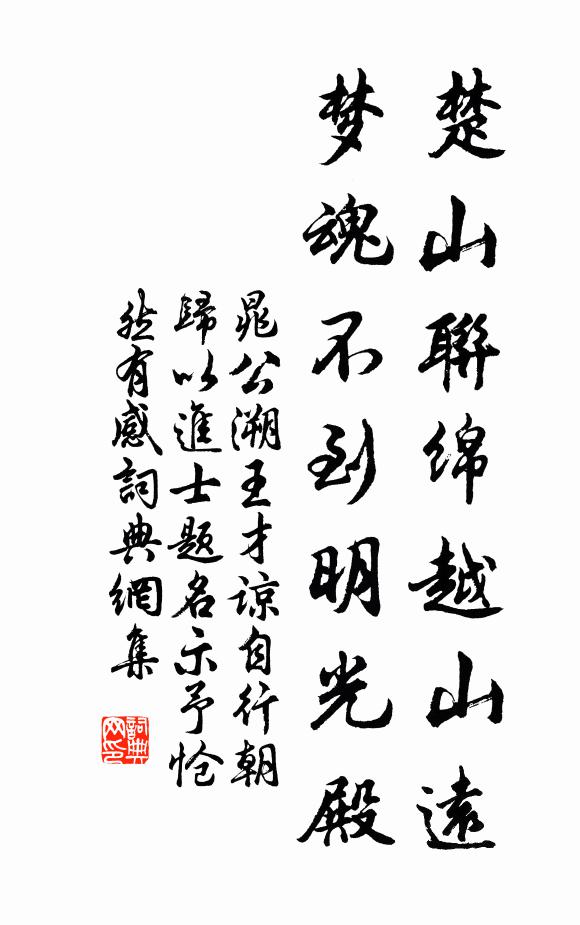 楚山聯绵越山遠
梦魂不到明光殿
晁公溯王才諒自行朝
歸以進士题名示予怆
然有感詞典網集
詞典网印